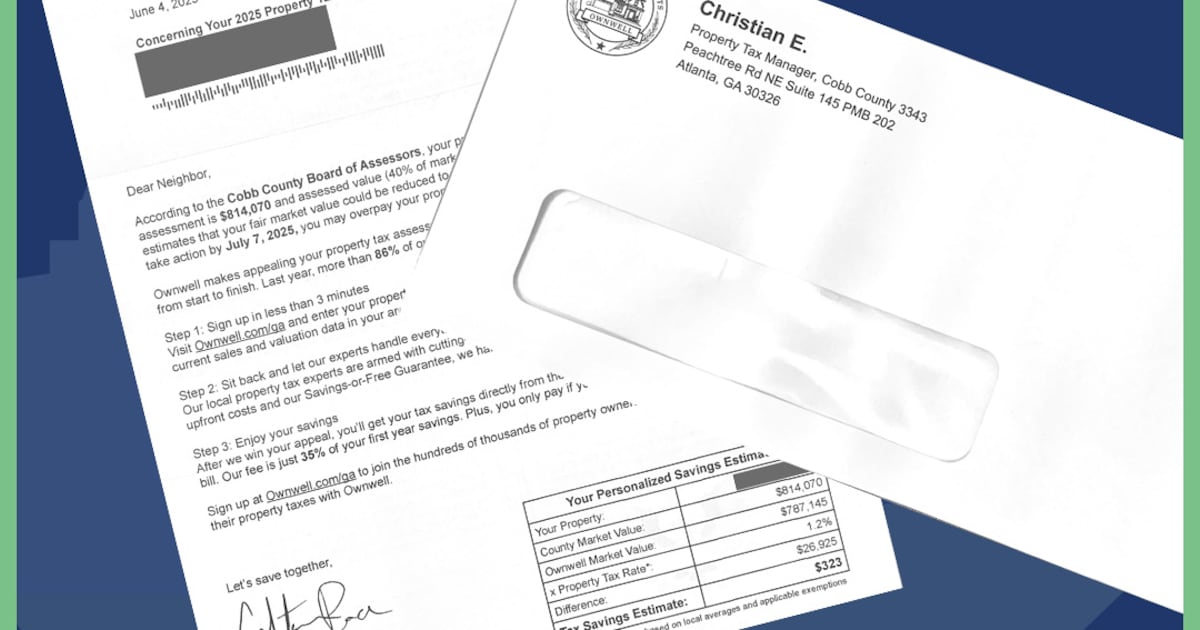 June 4, 2025
Concerning Your 2025 Property
Dear Neighbor,
According to the Cobb County Board of Assessors, your
assessment is $814,070 and assessed value (40% of
estimates that your fair market value could be reduced to
take action by July 7, 2025, you may overpay your
Ownwell makes appealing your property tax
from start to finish. Last year, more than 86% of
Step 1: Sign up in less than 3 minutes
Visit Ownwell.com/ga and enter your
current sales and valuation data in your
Step 2: Sit back and let our experts handle
Our local property tax experts are armed with cutting-
upfront costs and our Savings-or-Free Guarantee, we
Step 3: Enjoy your savings
After we win your appeal, you'll get your tax savings directly from the
bill. Our fee is just 35% of your first year savings. Plus, you only pay if
Sign up at Ownwell.com/ga to join the hundreds of thousands of property
their property taxes with Ownwell.
Let's save together,
Your Personalized Savings
Your Property:
County Market Value: $814,070
Ownwell Market Value: $787,145
x Property Tax Rate*: 1.2%
Difference: $26,925
Tax Savings Estimate: $323
based on local averages and applicable exemptions
OWNWELL
Christian E.
Property Tax Manager, Cobb County 3343
Peachtree Rd NE Suite 145 PMB 202
Atlanta, GA 30326